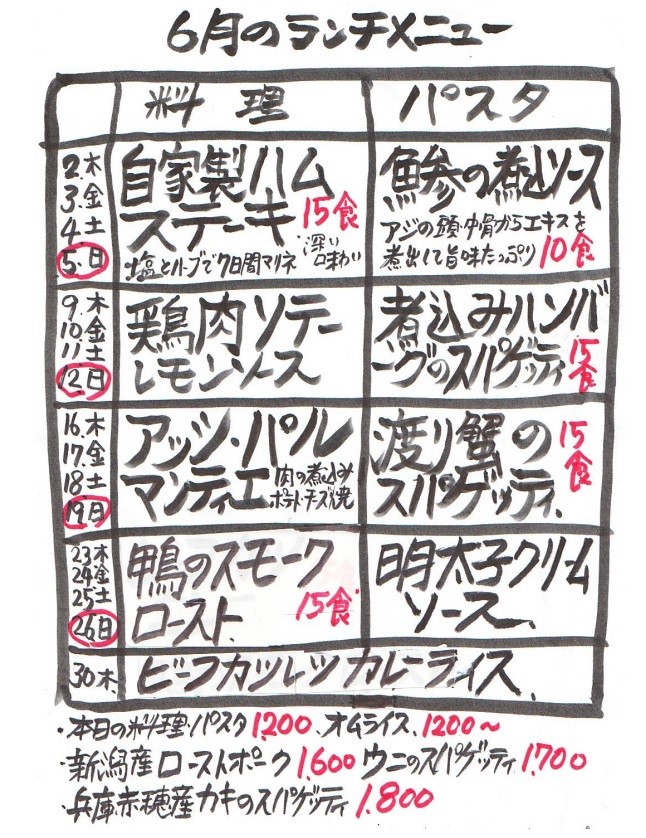 6月のランチメニュー
料理 パスタ
2.木
3.金
4 土
5.日
自家製ハム
ステーキ 15食
塩とハーブで7日間マリネ 深い
味わい
鯵の煮込ソース
アジの頭・中骨からエキスを
煮出して旨味たっぷり 10食
9.木
10.金
11.土
12日
鶏肉ソテー
レモンソース
煮込みハンバ
ーグのスパゲッティ 15食
16.木
17.金
18.土
19日
アッシ・パル
マンティエ 肉の煮込み
ポテト・チーズ焼
渡り蟹の 15食
スパゲッティ
23木
24金
25土
26日
鴨のスモーク
ロースト 15食
明太子クリーム
ソース
30木 ビーフカツレツカレーライス
・本日の料理・パスタ1200、オムライス、1200〜
・新潟産ローストポーク1.600 ウニのスパゲッティ1.700
・兵庫赤穂産カキのスパゲッティ1.800